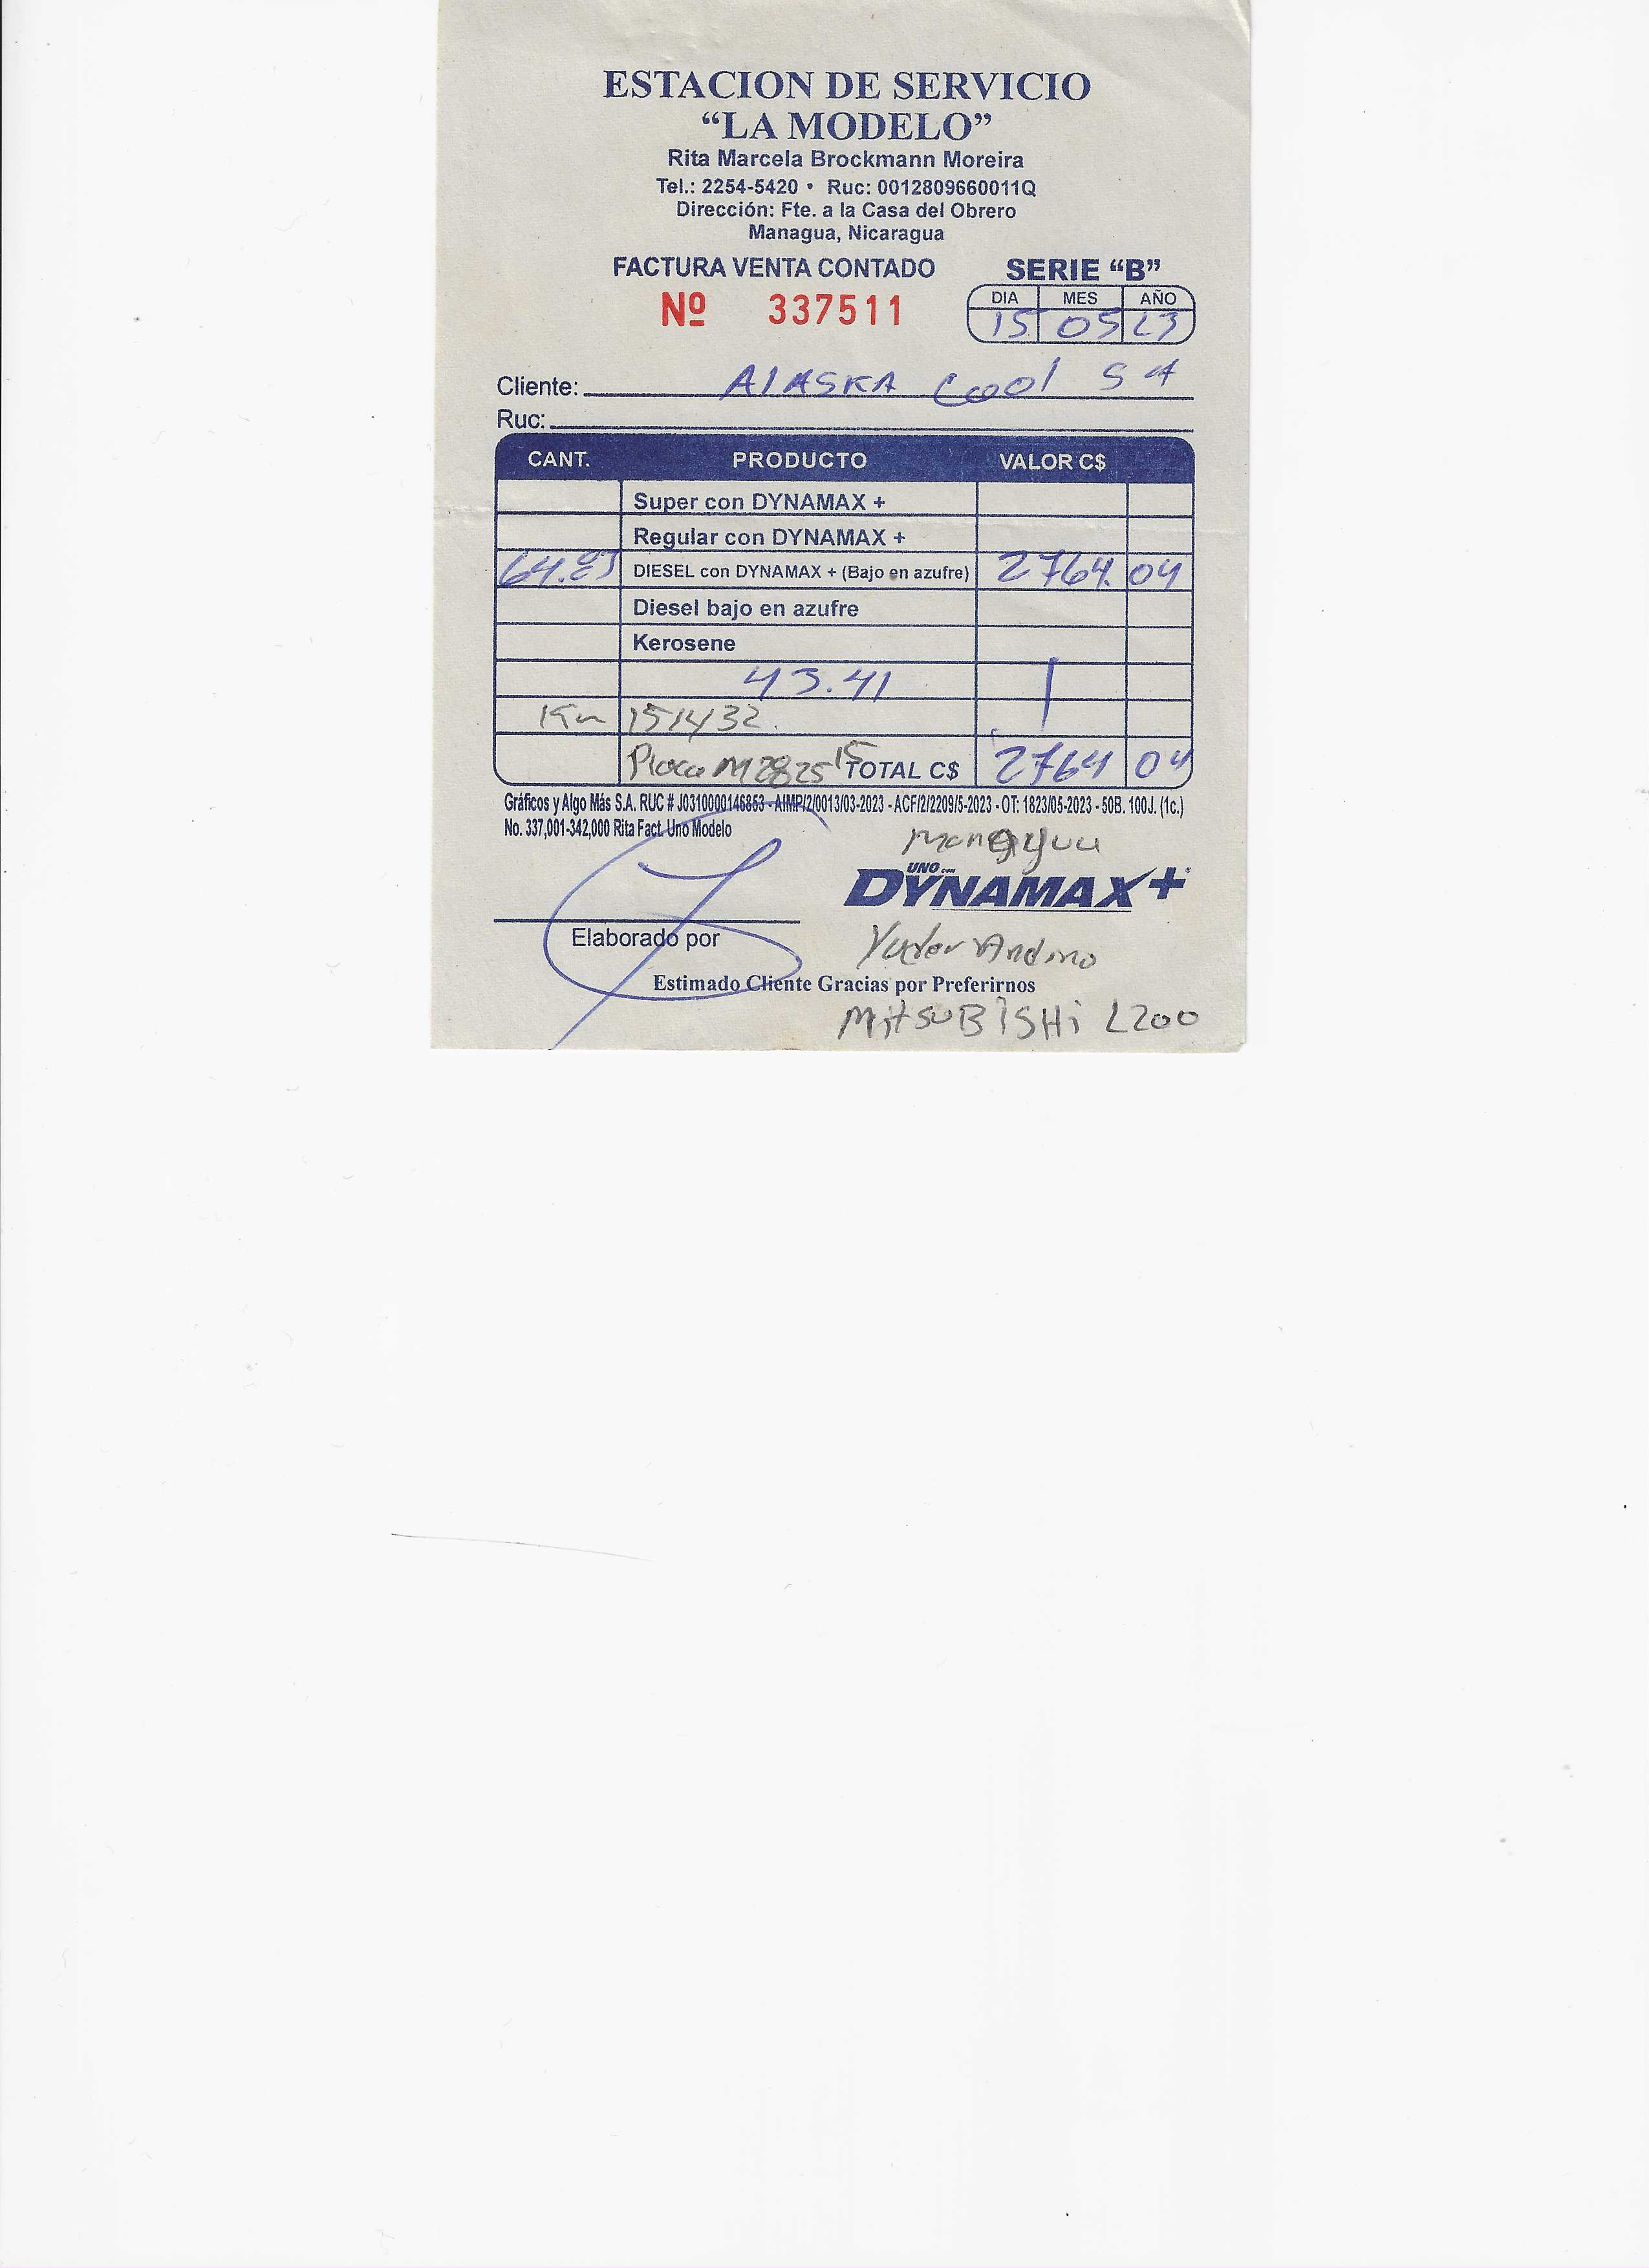 ESTACION DE SERVICIO
“LA MODELO”
Rita Marcela Brockmann Moreira
Tel.: 2254-5420 • Ruc: 0012809660011Q
Dirección: Fte. a la Casa del Obrero
Managua, Nicaragua
FACTURA VENTA CONTADO SERIE “B”
Nº 337511
DIA MES AÑO
15 05 23
Cliente: ALASKA Cool SA
Ruc:
CANT. PRODUCTO VALOR C$
Super con DYNAMAX +
Regular con DYNAMAX +
DIESEL con DYNAMAX + (Bajo en azufre) 2764.04
Diesel bajo en azufre
Kerosene
43.41
Km 151432.
Placa TOTAL C$ 2764 04
Gráficos y Algo Más S.A. RUC # J0310000146853 - AIMP/2/0013/03-2023 - ACF/2/2209/5-2023 - OT: 1823/05-2023 - 50B. 100J. (1c.)
No. 337,001-342,000 Rita Fact. Uno Modelo
Managua
UNO
DYNAMAX+
Elaborado por
Yader Andino
Estimado Cliente Gracias por Preferirnos
MitsuBiSHi L200